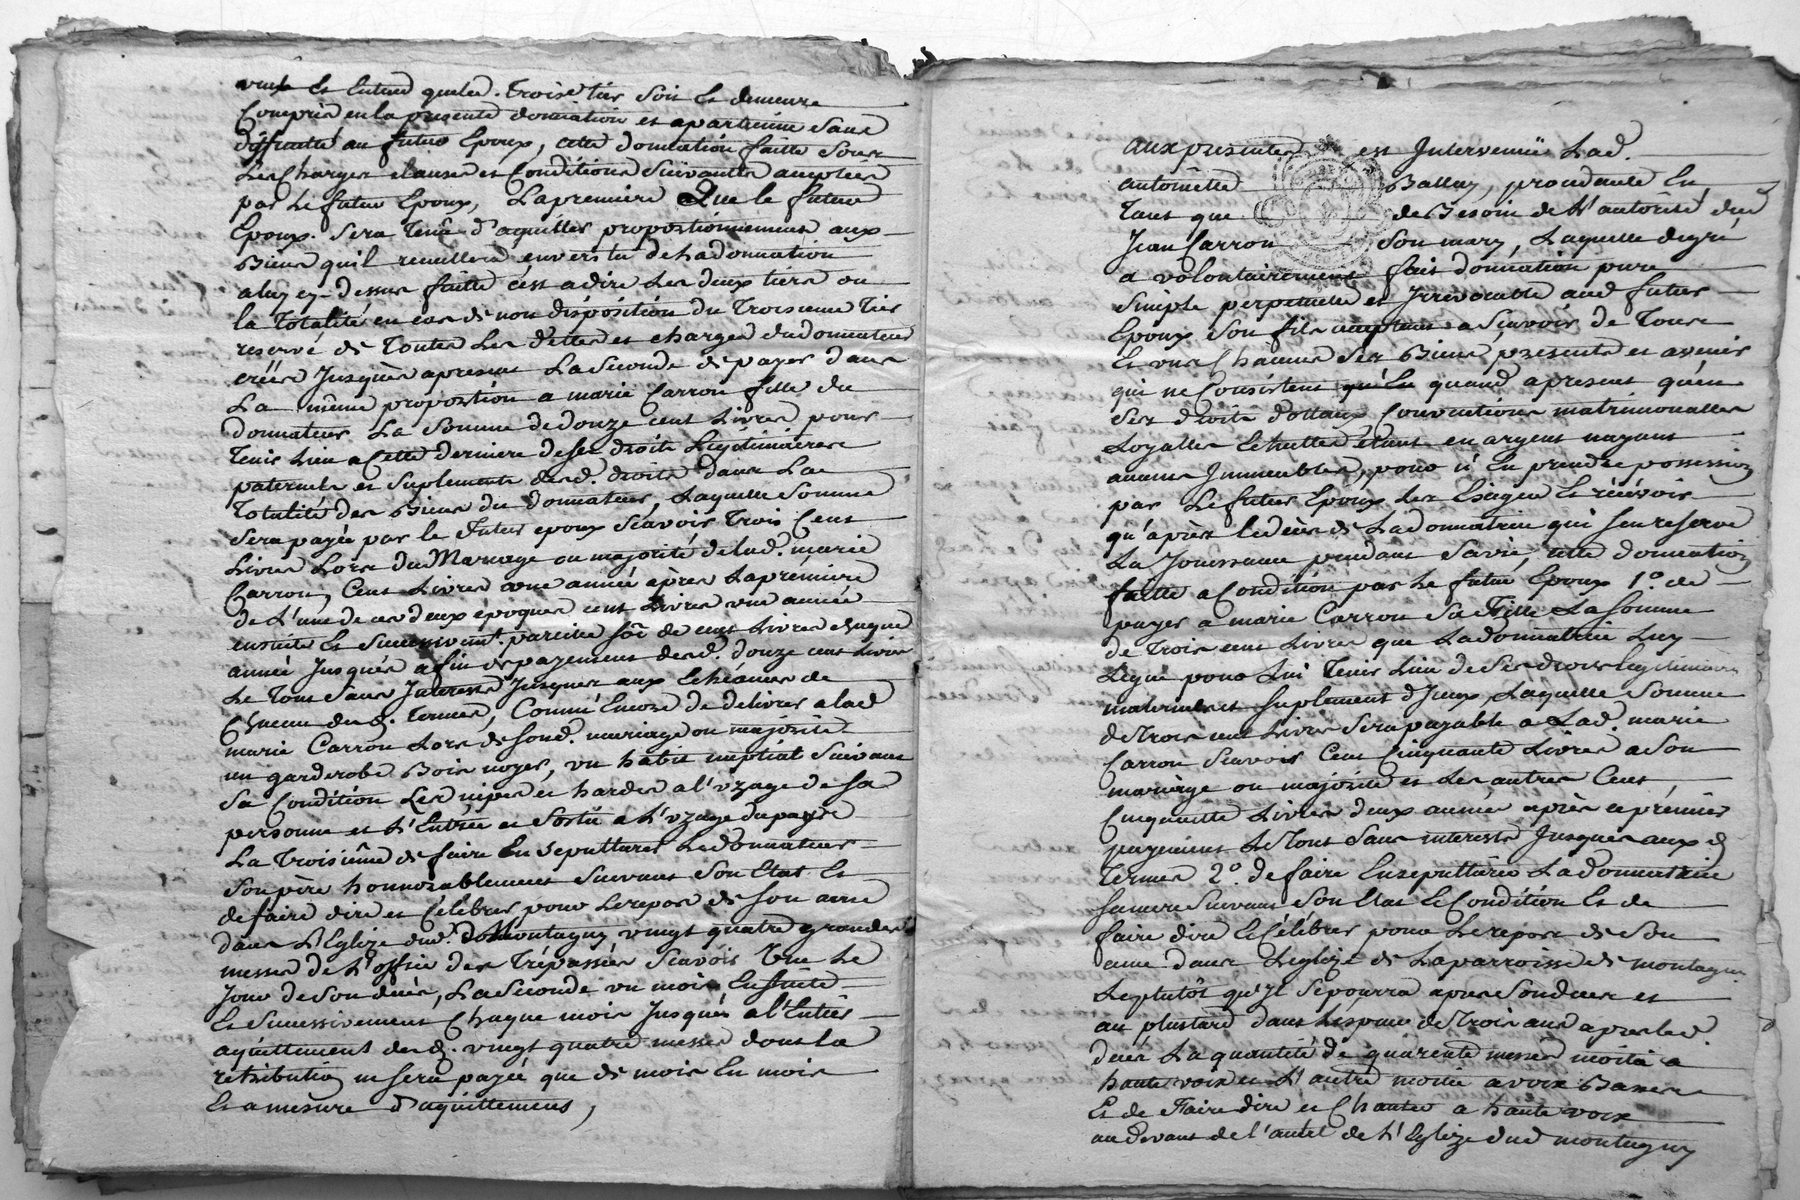 veux et Entend queled. troisè. tiers soit et demeure
Compris en la presente donnation et apartienne sans
difficulté au futur Epoux, cette donnation faitte sous
les Charges clauses et Conditions suivantes acceptées
par le futur Epoux, La premiere Que le futur
Epoux sera tenu d'aquitter proportionnement aux
Biens quil recuillera en vertu de la donnation
a luy cy-dessus faitte c'est a dire Les deux tiers ou
la totalité en cas de non disposition du troisieme tier
reservé de toutes Les dettes et charges du donnateur
créés Jusques apresent La seconde de payer dans
La même proportion a marie Carron fille du
donnateur La somme de douze cent Livres pour
tenir Lieu a Cette derniere de ses droits Legitimaires
paternels et suplements desd. droits dans La
totalité des Biens du donnateur, Laquelle somme
sera payée par le futur epoux scavoir trois Cent
Livres Lors du Mariage ou majorité de lad. marie
Carron, Cent Livres une année après La prémiere
de L'une de ces deux époques cent Livres une année
ensuite et successivemt. pareille soē de cent Livres chaque
année Jusques a fin de payement desd. douze cent Livres
Le tout sans Interests Jusques aux Echéances de
Chacun desd. termes, Comme Encore de delivrer a lad
marie Carron Lors de sond. mariage ou majorité
un garderobe Bois noyer, un habit nuptial suivant
sa Condition Les nipes et hardes a l'uzage de sa
personne et L'Entrée et Sortie a L'uzage du pays
La troisiême de faire En sepulturer Le donnateur
son père honnorablement suivant son Etat Et
de faire dire et Célébrer pour Le repos de son ame
dans L'Eglize dud. Montagny vingt quatre grandes
messes de L'office des trépassées scavoir Une Le
Jour de son décès, La seconde un mois Ensuite
Et successivement Chaque mois Jusques a l'Entier
aquittement desd. vingt quatre messes dont la
retribution ne sera payée que de mois En mois
Et a mesure d'aquittement,
aux presentes est Intervenüe Lad.
antoinette Ballay, procedante En
tant que de Besoin de L'autorité dud
Jean Carron son mary, Laquelle de gré
a volontairement fait donnation pure
simple perpetuelle et Irrévocable aud futur
Epoux son fils acceptant a Scavoir de tous
Et uns Chacuns ses Biens présents et avenir
qui ne Consistent quand apresent qu'en
ses droits dottaux Conventions matrimonialles
Loyalles Echuttes étant en argent nayant
aucuns Immeubles, pour n'En prendre possession
par Le futur Epoux Les Exiger Et récévoir
qu'après le deces de La donnatrice qui s'en reserve
La Jouissance pendant sa vie, cette donnation
faitte a Condition par Le futur Epoux 1°. de
payer a marie Carron sa fille La somme
de trois cent Livres que La donnatrice Luy
Legue pour Lui tenir Lieu de ses droits legitimaires
maternels et suplement d'Iceux, Laquelle somme
de trois cent Livres sera payable a Lad. marie
Carron scavoir Cent Cinquante Livres a son
mariage ou majorité et Les autres Cent
Cinquante Livres deux années après ce prémier
payement Le tout sans interests Jusques aux d
termes 2°. de faire Ensepulturer La donnatrice
sa mere suivant son Etat Et Condition Et de
faire dire Et Célébrer pour Le repos de son
ame dans L'eglize de La parroisse de montagny
Le plutôt qu'Il se pourra apres son deces et
au plus tard dans L'espace de trois ans apres led.
deces La quantité de quarente messes moitié a
haute voix et L'autre moitié a voix Basse
Et de Faire dire et Chanter a haute voix
au devant de l'autel de L'Eglize dud montagny